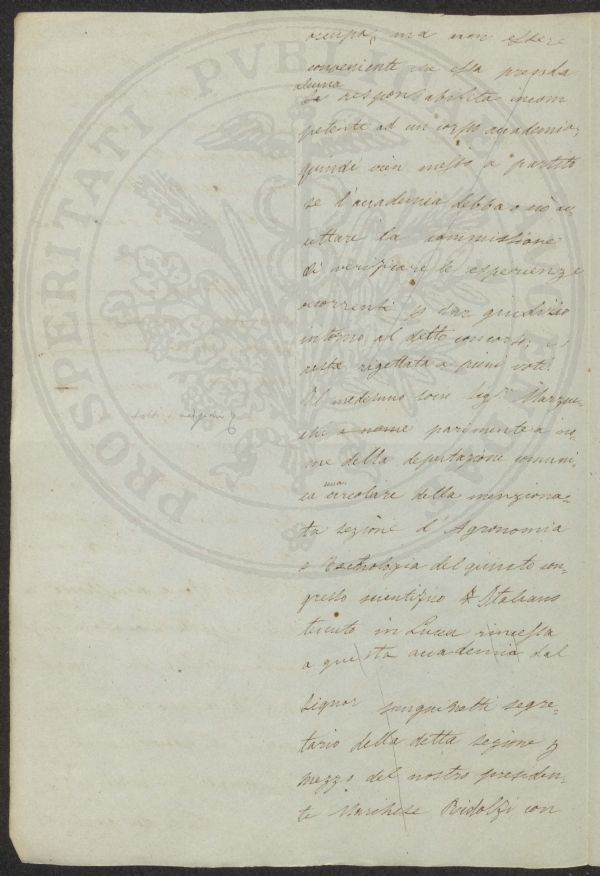 occupa, ma non essere
conveniente che essa prenda
alcuna
responsabilità incom
petente ad un corpo accademico,
quindi vien messo a partito
se l'accademia debba o nò ac
cettare la commissione
di verificare le esperienze
occorrenti p dar giudizio
intorno al detto concorso; e
resta rigettata a pieni voti.
Il medesimo socio Sigr.
a nome parimente a no
me della deputazione comuni
una
ca circolare della menziona
ta sezione d'Agronomia
e Tecnologia del quinto con
gresso scientifico Italiano
tenuto in Lucca rimessa
a questa accademia dal
Signor segre
tario della detta sezione p
mezzo del nostro presiden
te Marchese Ridolfi con
PROSPERITATI PVBLICAE